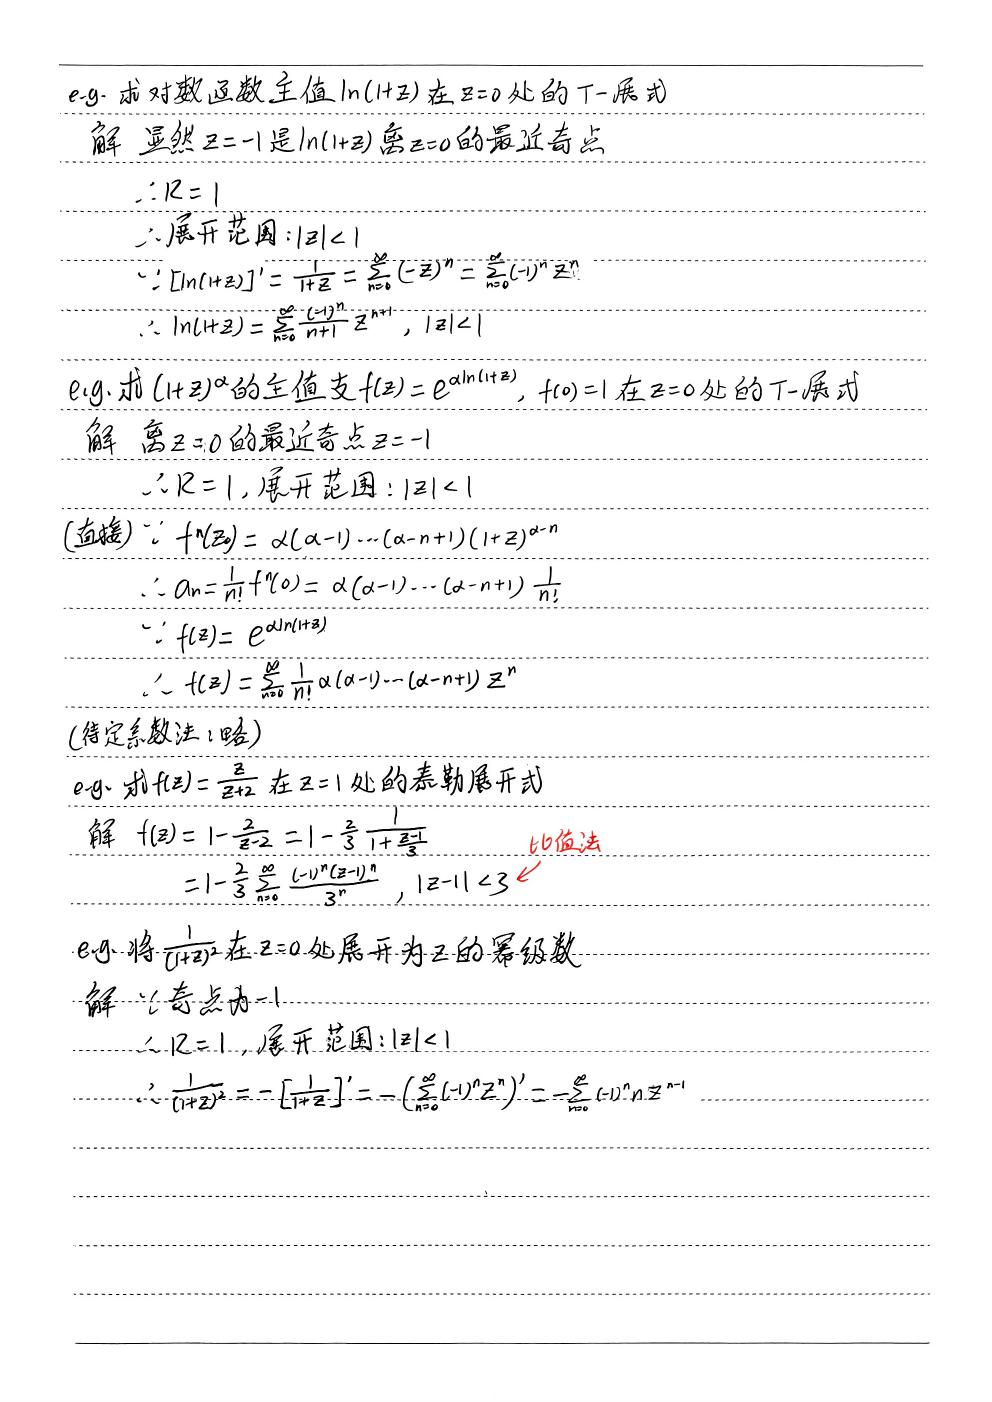 e.g. 求对数函数主值 ln(1+z) 在 z=0 处的 T-展式
解 显然 z=-1 是 ln(1+z) 离 z=0 的最近奇点
∴ R=1
∴ 展开范围: |z|<1
∵ [ln(1+z)]' = \frac{1}{1+z} = \sum_{n=0}^{∞} (-z)^n = \sum_{n=0}^{∞} (-1)^n z^n
∴ ln(1+z) = \sum_{n=0}^{∞} \frac{(-1)^n}{n+1} z^{n+1} , |z|<1
e.g. 求 (1+z)^α 的主值支 f(z) = e^{αln(1+z)} , f(0)=1 在 z=0 处的 T-展式
解 离 z=0 的最近奇点 z=-1
∴ R=1 , 展开范围: |z|<1
(直接) ∵ f^n(z_0) = α(α-1)···(α-n+1)(1+z)^{α-n}
∴ a_n = \frac{1}{n!} f^n(0) = α(α-1)···(α-n+1) \frac{1}{n!}
∵ f(z) = e^{αln(1+z)}
∴ f(z) = \sum_{n=0}^{∞} \frac{1}{n!} α(α-1)···(α-n+1) z^n
(待定系数法: 略)
e.g. 求 f(z) = \frac{z}{z+2} 在 z=1 处的泰勒展开式
解 f(z) = 1 - \frac{2}{z-2} = 1 - \frac{2}{3} \frac{1}{1+\frac{z-1}{3}}
比值法
= 1 - \frac{2}{3} \sum_{n=0}^{∞} \frac{(-1)^n (z-1)^n}{3^n} , |z-1|<3
e.g. 将 \frac{1}{(1+z)^2} 在 z=0 处展开为 z 的幂级数
解 ∵ 奇点为 -1
∴ R=1 , 展开范围: |z|<1
∴ \frac{1}{(1+z)^2} = -[\frac{1}{1+z}]' = -(\sum_{n=0}^{∞} (-1)^n z^n)' = -\sum_{n=0}^{∞} (-1)^n n z^{n-1}